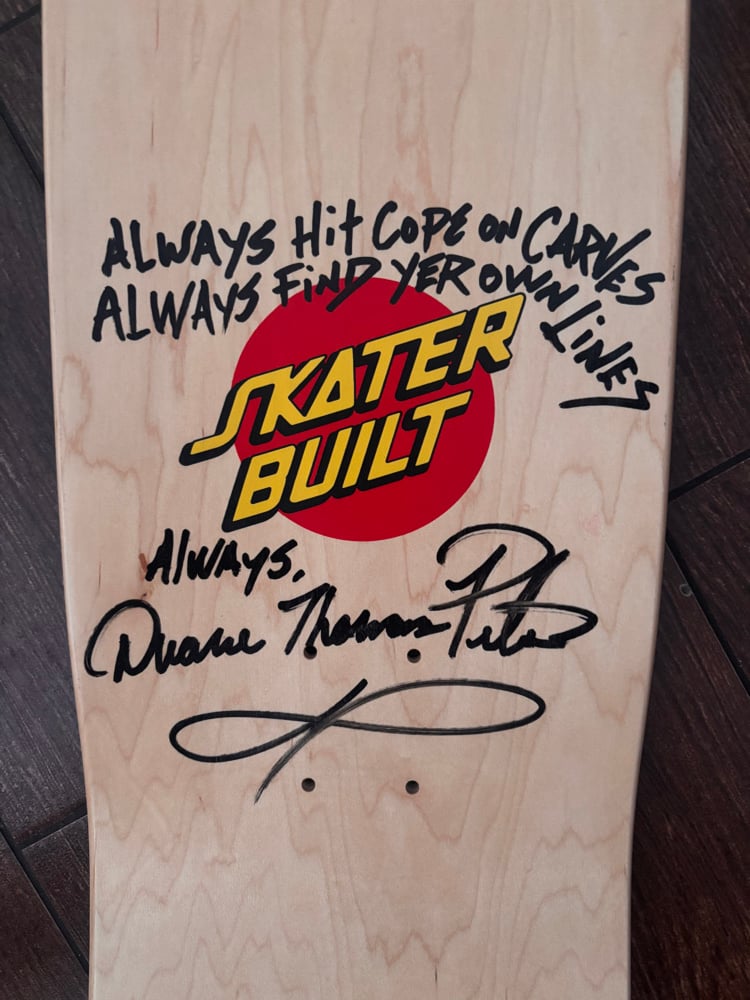 ALWAYS Hit COPE ON CARVES
ALWAYS FiND YER OWN LiNES
SKATER
BUILT
Always,
Duane Thomas Peters